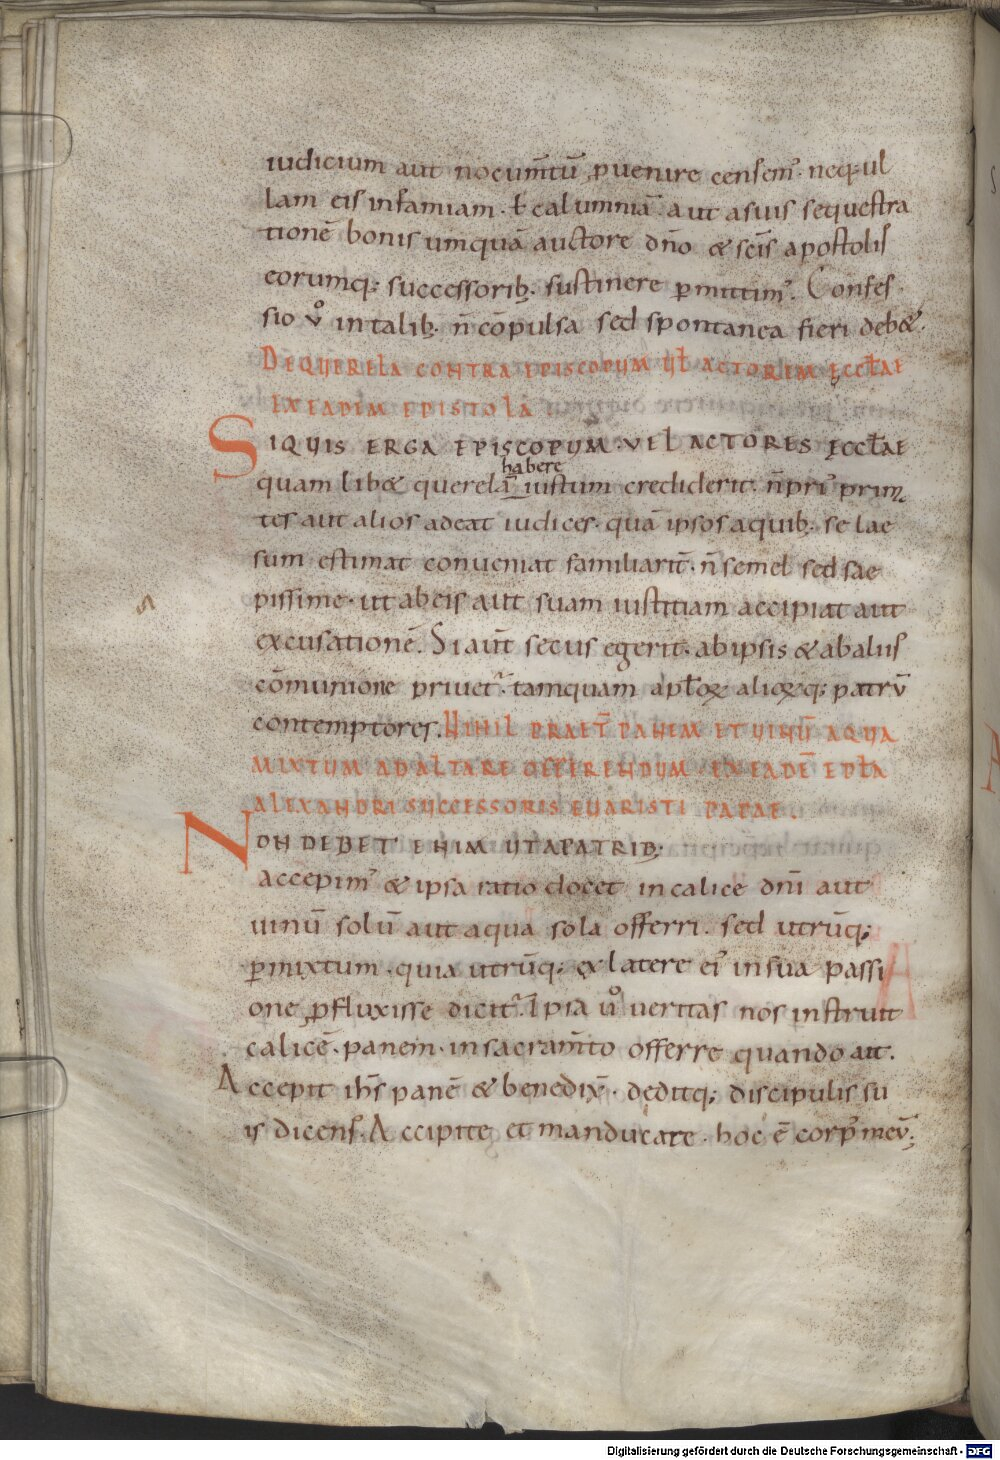 iudicium aut nocum̄tū ꝓuenire censem᾽. neq; ul
lam eis infamiam. ł calumniā aut asuis sequestra
tionē bonis umquā auctore dn̄o & sc̄is apostolis
eorumq; successorib;. sustinere ꝑmittim᾽. Confes
sio v̊ intalib; n̄ cōpulsa sed spontanea fieri deb&.
DEQUERELA CONTRA EPISCOPUM UŁ ACTOREM ĘCCŁAE
EX EADEM EPISTOLA
SIQUIS ERGA EPISCOPUM. VEL ACTORES ĘCCŁAE
habere
quam lib& querelā iustum crediderit. n̄ pri᾽ prima
tes aut alios adeat iudices. quā ipsos aquib; se lae
sum estimat conueniat familiarit̄. n̄ semel sed sae
pissime. ut abeis aut suam iustitiam accipiat aut
excusationē. Si aut̄ secus egerit. abipsis & abaliis
cōmunione priuet᾽. tamquam apłoꝝ alioꝝq; patrū
contemptores. NIHIL PRAET̄ PANEM ET UINŪ AQUA
MIXTUM ADALTARE OFFERENDUM. EX EADĒ EPŁA
ALEXANDRI SUCCESSORIS EUARISTI PAPAE.
NON DEBET ENIM UT A PATRIB;
accepim᾽ & ipsa ratio docet incalice dn̄i aut
uinū solū aut aqua sola offerri. sed utrūq;
ꝑmixtum. quia utrūq; ex latere ei᾽ insua passi
one ꝓfluxisse dicit᾽. Ipsa ů ueritas nos instruit
calicē. panem. insacram̄to offerre quando ait.
Accepit ih̄s panē & benedix̄. deditq; discipulis su
is dicens. Accipite et manducate. hoc ē corp᾽ meū;